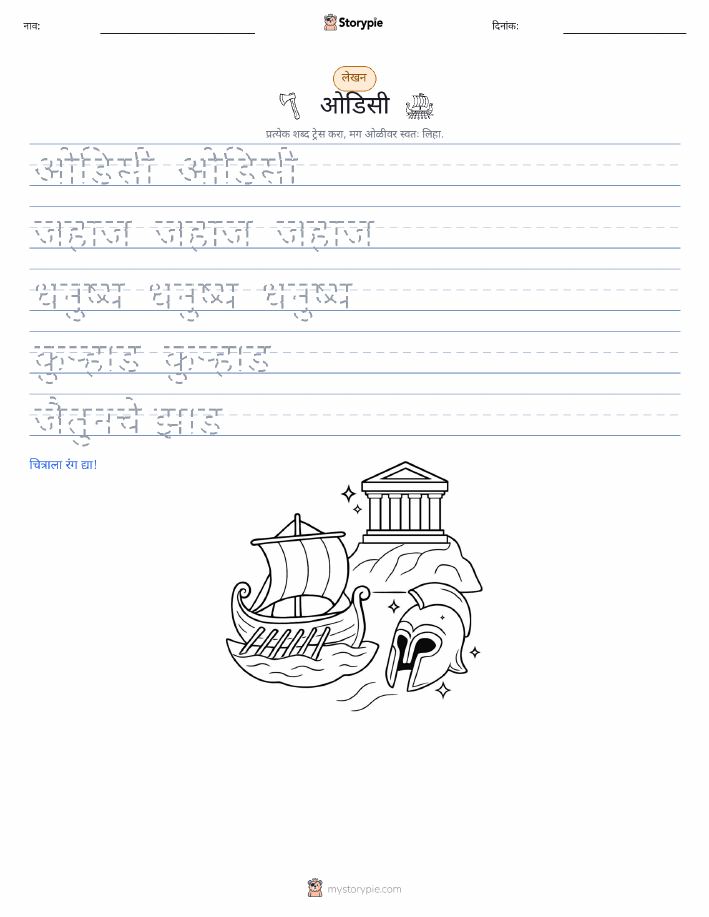 नाव: Storypie दिनांक:
लेखन
ओडिसी
प्रत्येक शब्द ट्रेस करा, मग ओळीवर स्वतः लिहा.
ओडिसी ओडिसी
जहाज जहाज जहाज
धनुष्य धनुष्य धनुष्य
कुऱ्हाड कुऱ्हाड
जैतुनचे झाड
चित्राला रंग द्या!
mystorypie.com